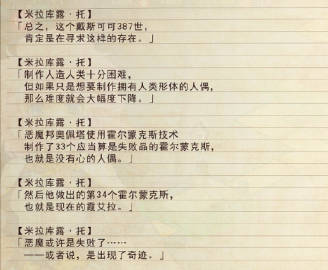 【米拉库露·托】
「总之，这个戴斯可可387世，
肯定是在寻求这样的存在。」
【米拉库露·托】
「制作人造人类十分困难，
但如果只是想要制作拥有人类形体的人偶，
那么难度就会大幅度下降。」
【米拉库露·托】
「恶魔邦奥佩塔使用霍尔蒙克斯技术
制作了33个应当算是失败品的霍尔蒙克斯，
也就是没有心的人偶。」
【米拉库露·托】
「然后他做出的第34个霍尔蒙克斯，
也就是现在的霞艾拉。」
【米拉库露·托】
「恶魔或许是失败了……
——或者说，是出现了奇迹。」